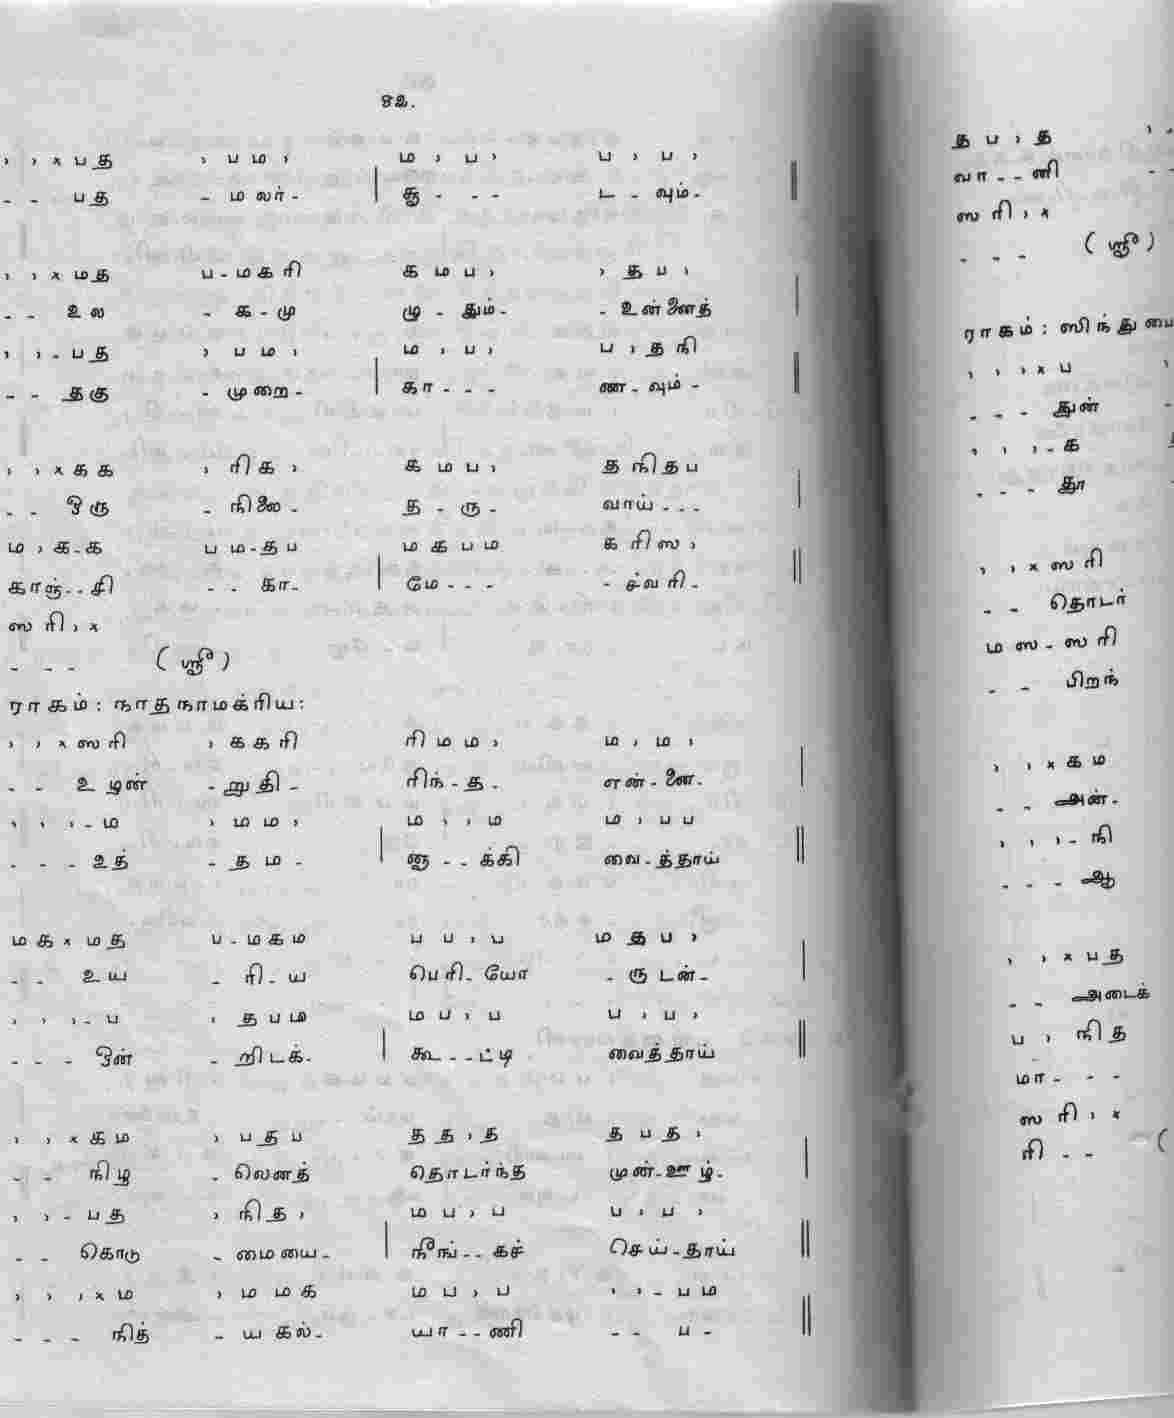 82.
, , × ப த , ப ம , ம , ப , ப , ப ,
- - பத - மலர் - | சூ - - - ட - வும் - ||
, , × ம த ப - ம க ரி க ம ப , , த ப , |
- - உல - க - மு மு - தும் - - உன்னைத்
, , - ப த , ப ம , ம , ப , ப , த நி
- - தகு - முறை - | கா - - - ண - வும் - ||
, , × க க , ரி க , க ம ப , த நி த ப |
- - ஒரு - நிலை - த - ரு - வாய் - - -
ம , க - க ப ம - த ப ம க ப ம க ரி ஸ ,
காஞ் - - சி - - கா - | மே - - - - ச்வரி - ||
ஸ ரி , ×
- - - ( ஸ்ரீ )
ராகம் : நாதநாமக்ரிய :
, , × ஸ ரி , க க ரி ரி ம ம , ம , ம , |
- - உழன் - றுதி - ரிந் - த - என் - னை -
, , , - ம , ம ம , ம , , ம ம , ப ப
- - - உத் - தம - | ஞ - - க்கி வை - த்தாய் ||
ம க × ம த ப - ம க ம ப ப , ப ம த ப , |
- - உய - ரி - ய பெரி - யோ - ருடன் -
, , , - ப , த ப ம ம ப , ப ப , ப ,
- - - ஒன் - றிடக் - | கூ - - ட்டி வைத்தாய் ||
, , × க ம , ப த ப த த , த த ப த , |
- - நிழ - லெனத் தொடர்ந்த முன் - ஊழ் -
, , - ப த , நி த , ம ப , ப ப , ப ,
- - கொடு - மையை - | நீங் - - கச் செய் - தாய் ||
, , , × ம , ம ம க ம ப , ப , , - ப ம
- - - நித் - யகல் - யா - - ணி - - ப - ||
த ப , த , -
வா - - ணி - -
ஸ ரி , ×
- - - ( ஸ்ரீ )
ராகம் : ஸிந்துபை
, , , × ப ,
- - - துன் -
, , , - க
- - - தா -
, , × ஸ ரி
- - தொடர்
ம ஸ - ஸ ரி
- - பிறந்
, , × க ம
- - அன் -
, , , - நி
- - - ஆ
, , × ப த
- - அடைக்
ப , நி த
மா - - -
ஸ ரி , ×
ரி - - (